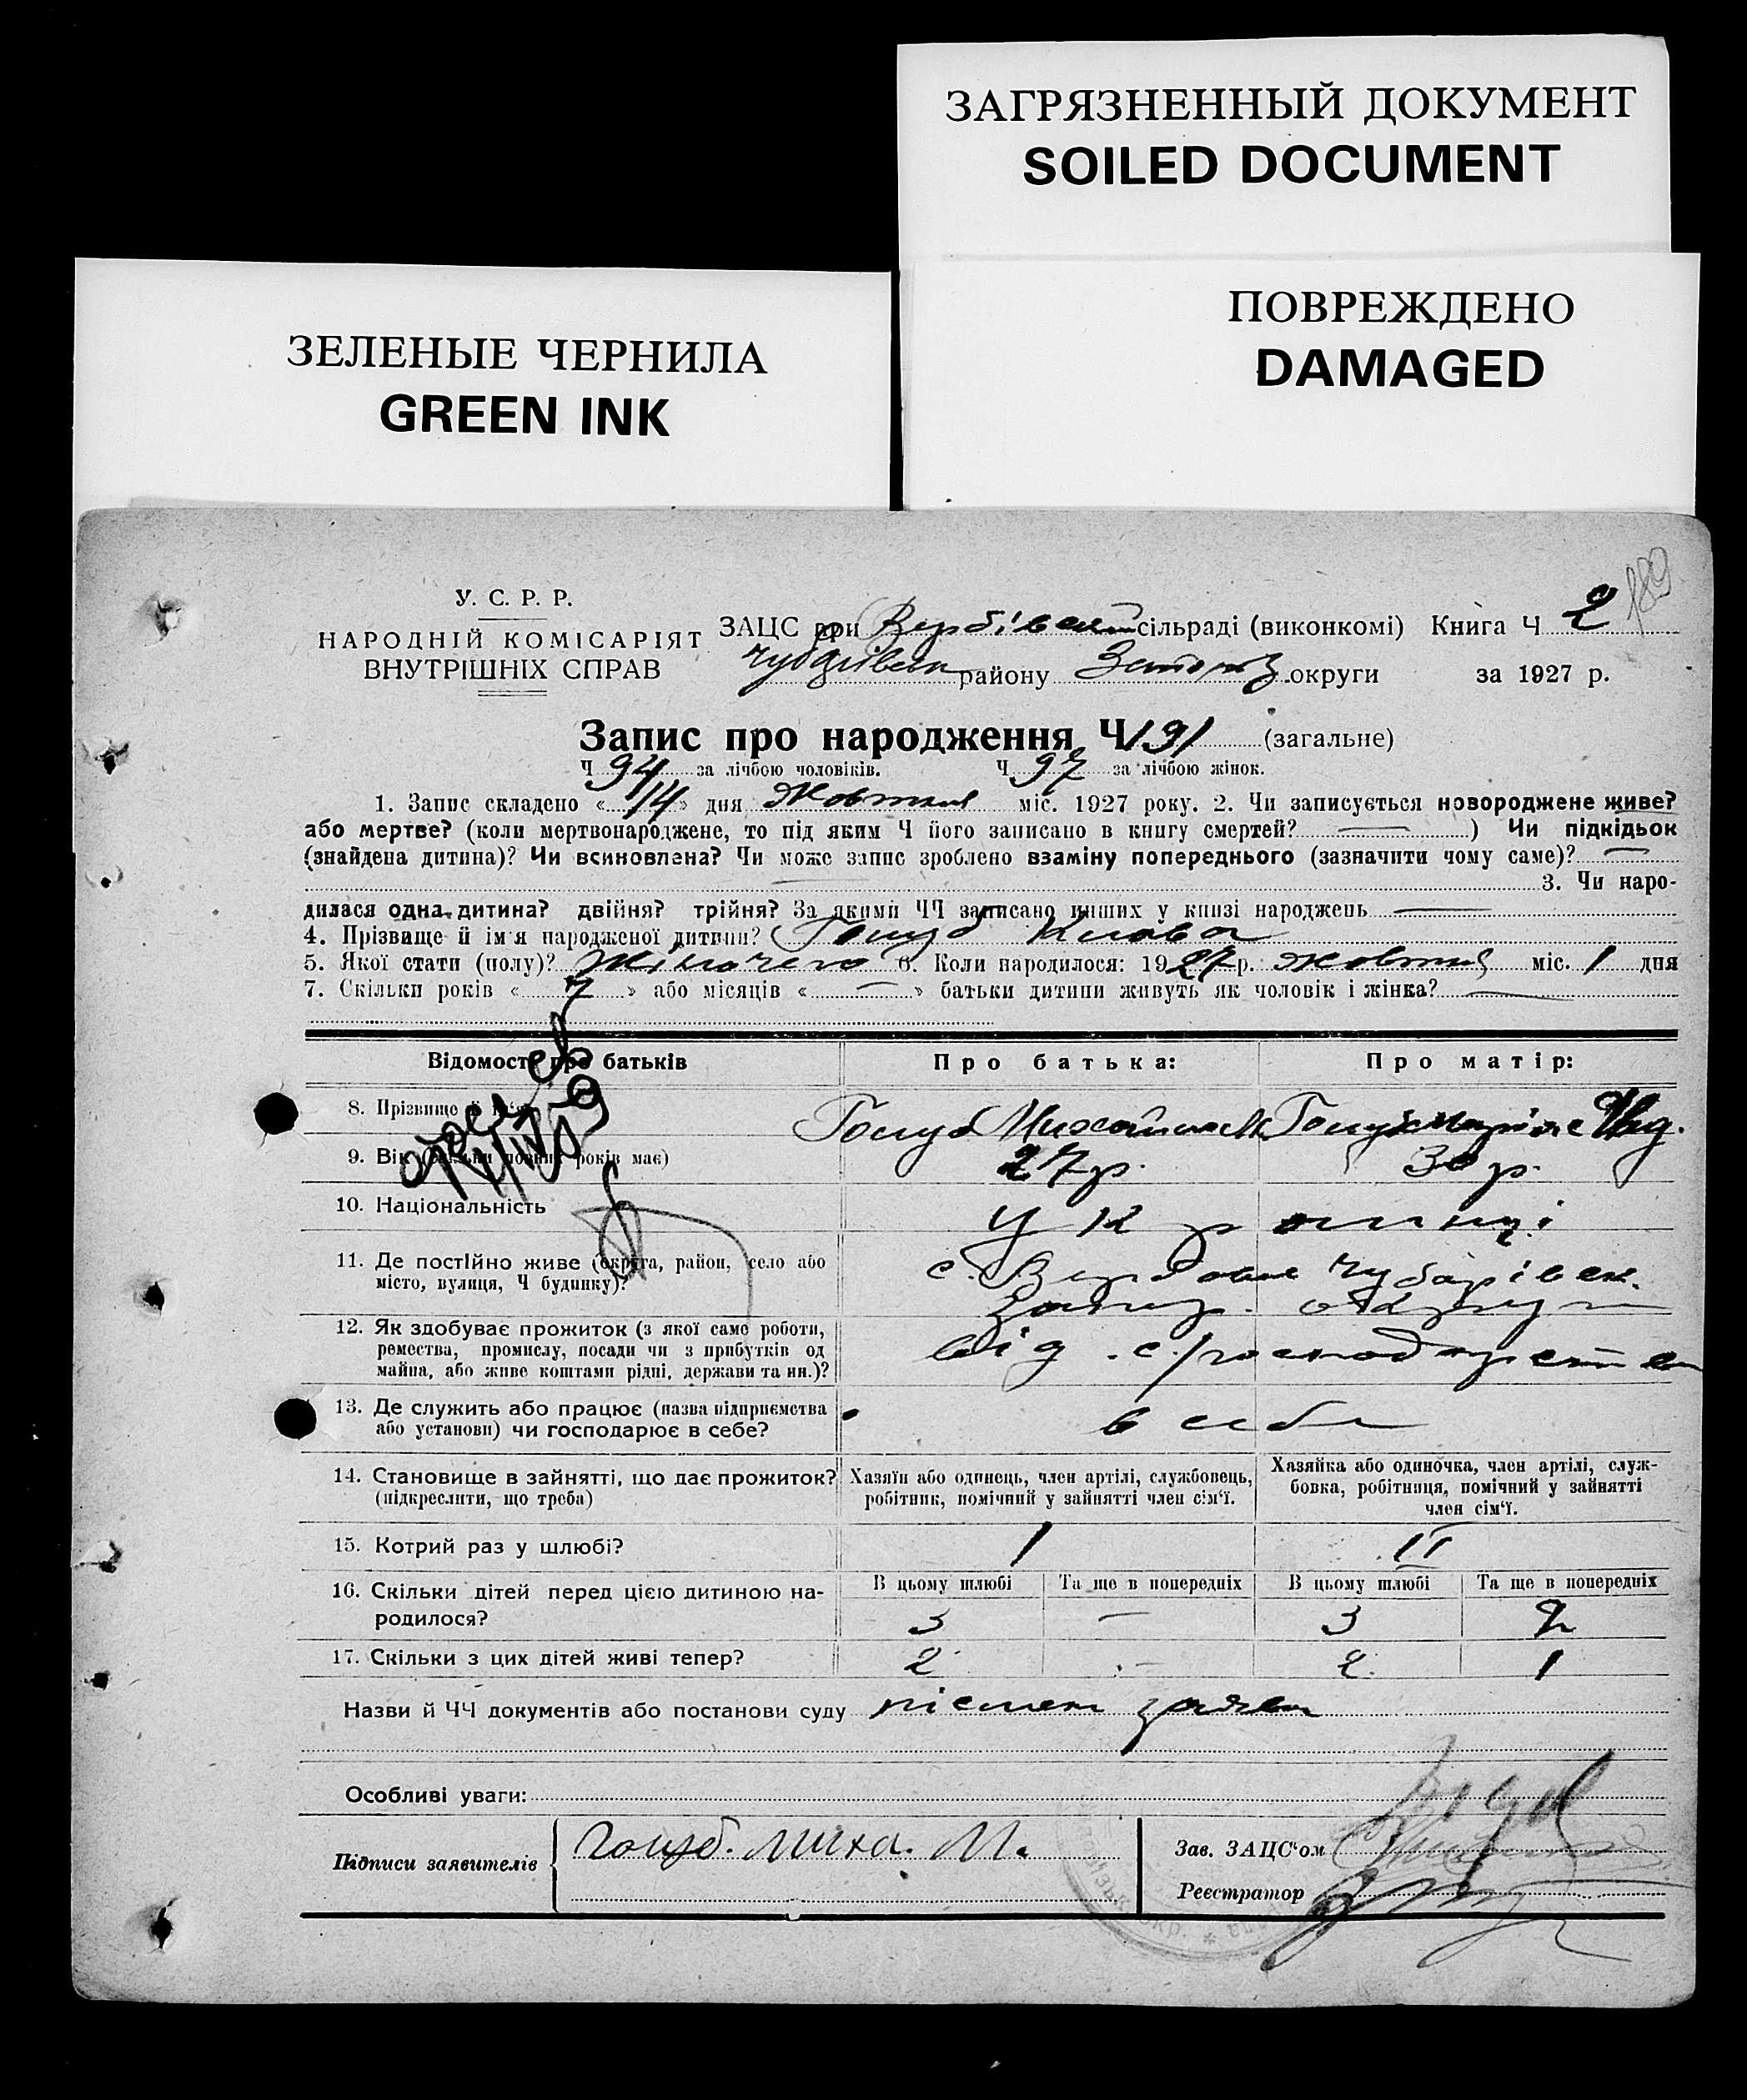 ЗАГРЯЗНЕННЫЙ ДОКУМЕНТ
SOILED DOCUMENT
ПОВРЕЖДЕНО
DAMAGED
ЗЕЛЕНЫЕ ЧЕРНИЛА
GREEN INK
189
У. С. Р. Р.
НАРОДНІЙ КОМІСАРІЯТ
ВНУТРІШНІХ СПРАВ
ЗАЦС при Вербівськ сільраді (виконкомі) Книга Ч 2
району Запоріз округи за 1927 р.
Запис про народження Ч 191 (загальне)
Ч 94 за лічбою чоловіків. Ч 97 за лічбою жінок.
1. Запис складено « 14 » дня Жовтня міс. 1927 року. 2. Чи записується новороджене живе?
або мертве? (коли мертвонароджене, то під яким Ч його записано в книгу смертей? —) Чи підкідьок
(знайдена дитина)? Чи всиновлена? Чи може запис зроблено взаміну попереднього (зазначити чому саме)? —
3. Чи наро-
дилася одна дитина? двійня? трійня? За якими ЧЧ записано инших у книзі народжень —
4. Прізвище й ім'я народженої дитини? Голуб Клава
5. Якої стати (полу)? Жіночего 6. Коли народилося: 1927 р. жовтня міс. 1 дня
7. Скільки років « 7 » або місяців « — » батьки дитини живуть як чоловік і жінка? —
Відомості про батьків Про батька: Про матір:
8. Прізвище й ім'я Голуб Михайло М Голуб Марія
9. Вік (скільки повних років має) 27 р. 30 р.
10. Національність Українці
11. Де постійно живе (округа, район, село або с. Вербове Чубарівськ.
місто, вулиця, Ч будинку)? Запор. округи
12. Як здобуває прожиток (з якої саме роботи, від с/господарства
ремества, промислу, посади чи з прибутків од
майна, або живе коштами рідні, держави та ин.)?
13. Де служить або працює (назва підприємства в себе
або установи) чи господарює в себе?
14. Становище в зайнятті, що дає прожиток? Хазяїн або одинець, член артілі, службовець, Хазяйка або одиночка, член артілі, служ-
(підкреслити, що треба) робітник, помічний у зайнятті член сім'ї. бовка, робітниця, помічний у зайнятті
член сім'ї.
15. Котрий раз у шлюбі? 1 II
16. Скільки дітей перед цією дитиною на- В цьому шлюбі Та ще в попередніх В цьому шлюбі Та ще в попередніх
родилося? 3 — 3 2
17. Скільки з цих дітей живі тепер? 2 — 2 1
Назви й ЧЧ документів або постанови суду письмен заява
Особливі уваги:
Підписи заявителів Голуб. Миха. М.
Зав. ЗАЦС'ом
Реєстратор